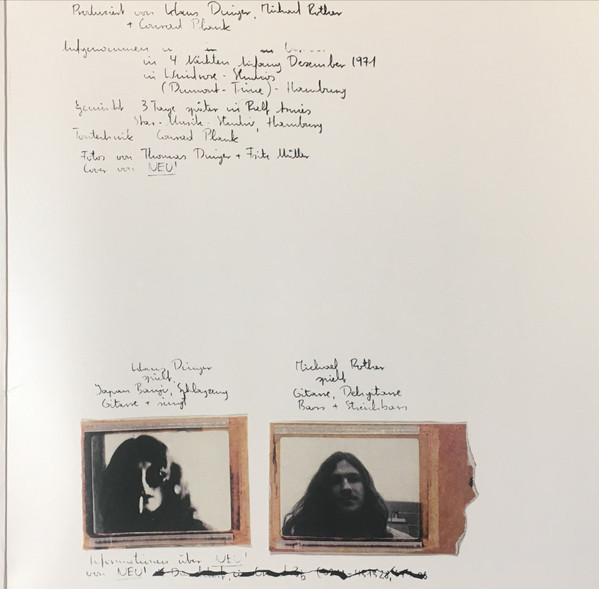 Produziert von Klaus Dinger, Michael Rother
+ Conrad Plank
Aufgenommen
in 4 Nächten Anfang Dezember 1971
in Windrose-Studios
(Dumont-Time) - Hamburg
Gemischt 3 Tage später in Ralf Arnies
Star-Musik-Studio, Hamburg
Tontechnik Conrad Plank
Fotos von Thomas Dinger + Fritz Müller
Cover von NEU!
Klaus Dinger
spielt
Japan Banjo, Schlagzeug
Gitarre + singt
Michael Rother
spielt
Gitarre, Dehgitarre
Bass + Streichbass
Informationen über NEU!
von NEU!